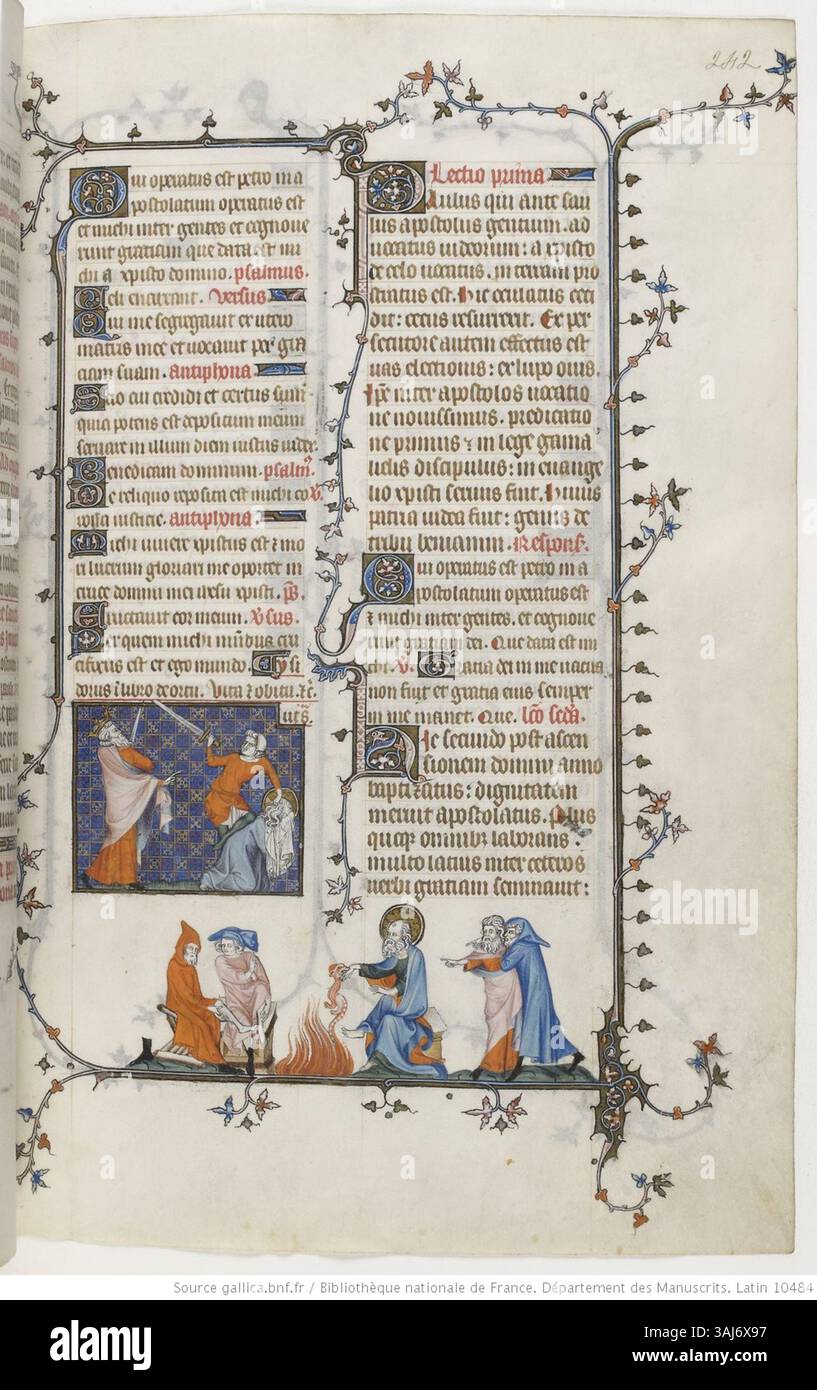 242
Qui operatus est petro in a
postolatum operatus est
et michi inter gentes et cognoue
runt gratiam que data est mi
chi a xpisto domino. psalmus.
Celi enarrant. Versus
Qui me segregauit ex utero
matris mee et uocauit per gra
ciam suam. antiphona
Scio cui credidi et certus sum
quia potens est depositum meum
seruare in illum diem iustus iudex.
Benedicam dominum. psalm9.
De reliquo reposita est michi co
rona iusticie. antiphona
Michi uiuere xpistus est & mo
ri lucrum gloriari me oportet in
cruce domini mei ihesu xpisti. ps
Eructauit cor meum. vsus.
Per quem michi mundus cru
cifixus est et ego mundo. Ysi
dorus i libro de ortu. Vita & obitu.
Lectio prima
Paulus qui ante sau
lus apostolus gentium. ad
uocatus iudeorum: a xpisto
de celo uocatus. in terram pro
stratus est. Hic oculatus ceci
dit: cecus resurrexit. Ex per
secutore autem effectus est
uas electionis: ex lupo ouis.
Ipe inter apostolos uocatio
ne nouissimus. predicatio
ne primus & in lege gama
lielis discipulus: in euange
lio xpisti seruus fuit. Huius
patria iudea fuit: genus de
tribu beniamin. Respons.
Qui operatus est petro in a
postolatum operatus est
& michi inter gentes. et cognoue
runt gratiam dei. Que data est mi
chi. v. Gratia dei in me uacua
non fuit et gratia eius semper
in me manet. Que. lco secda.
Hic secundo post ascen
sionem domini anno
baptizatus: dignitatem
meruit apostolatus. Plus
quoque omnibus laborans:
multo latius inter ceteros
uerbi gratiam seminauit:
alamy
Source gallica.bnf.fr / Bibliothèque nationale de France. Département des Manuscrits. Latin 10484
alamy
Image ID: 3AJ6X97
www.alamy.com